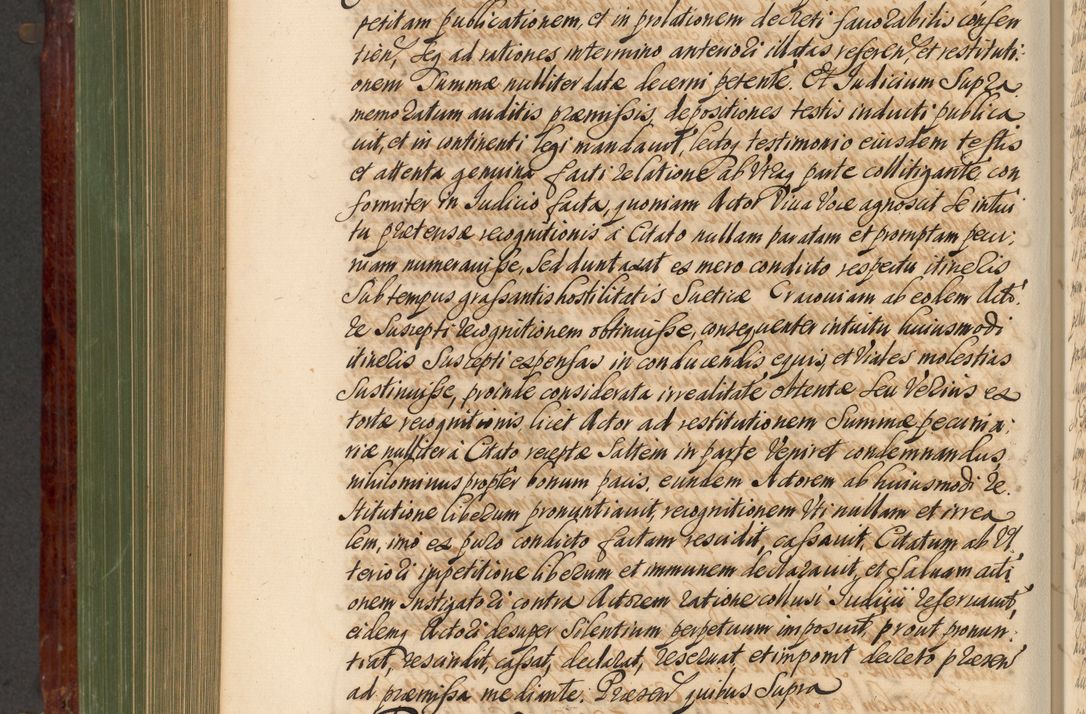 petitam publicationem, et in prolationem decreti favorabilis consen
tien, seq ad rationes in termino anteriori illatas referen, et restituti-
onem summæ nulliter datæ decerni petente. Et Judicium supra
memoratum auditis præmissis, depositiones testis inducti publica
uit, et in continenti legi mandauit, lecto testimonio eiusdem testis
et attenta genuina facti relatione ab utraq parte collitigante con
formiter in Judicio facta, quoniam Actor viva voce agnoscit se intui
tu prætensæ recognitionis à Citato nullam paratam et promptam pecu-
niam numerauisse, sed duntaxat ex mero condicto respectu itineris
sub tempus grassantis hostilitatis Sueticæ Cracouiam ab eodem Acto-
re suscepti recognitionem obtinuisse, consequenter intuitu huiusmodi
itineris suscepti expensas in conducendis equis, et viales molestias
sustinuisse, proinde considerata irrealitate obtentæ seu verius ex
tortæ recognitionis, licet Actor ad restitutionem summæ pecunia-
riæ nulliter à Citato receptæ saltem in parte veniret condemnandus,
nihilominus propter bonum pacis, eundem Actorem ab huiusmodi re-
stitutione liberum pronuntiauit, recognitionem uti nullam et irrea
lem, imo ex puro condicto factam rescidit, cassauit, Citatum ab ul
teriori impetitione liberum et immunem declarauit, et saluam acti
onem Instigatori contra Actorem ratione collusi Judicii reseruauit,
eidemq Actori desuper silentium perpetuum imposuit, prout pronun-
tiat, rescindit, cassat, declarat, reseruat, et imponit decreto præsen
ad præmissa mediante. Præsen quibus supra